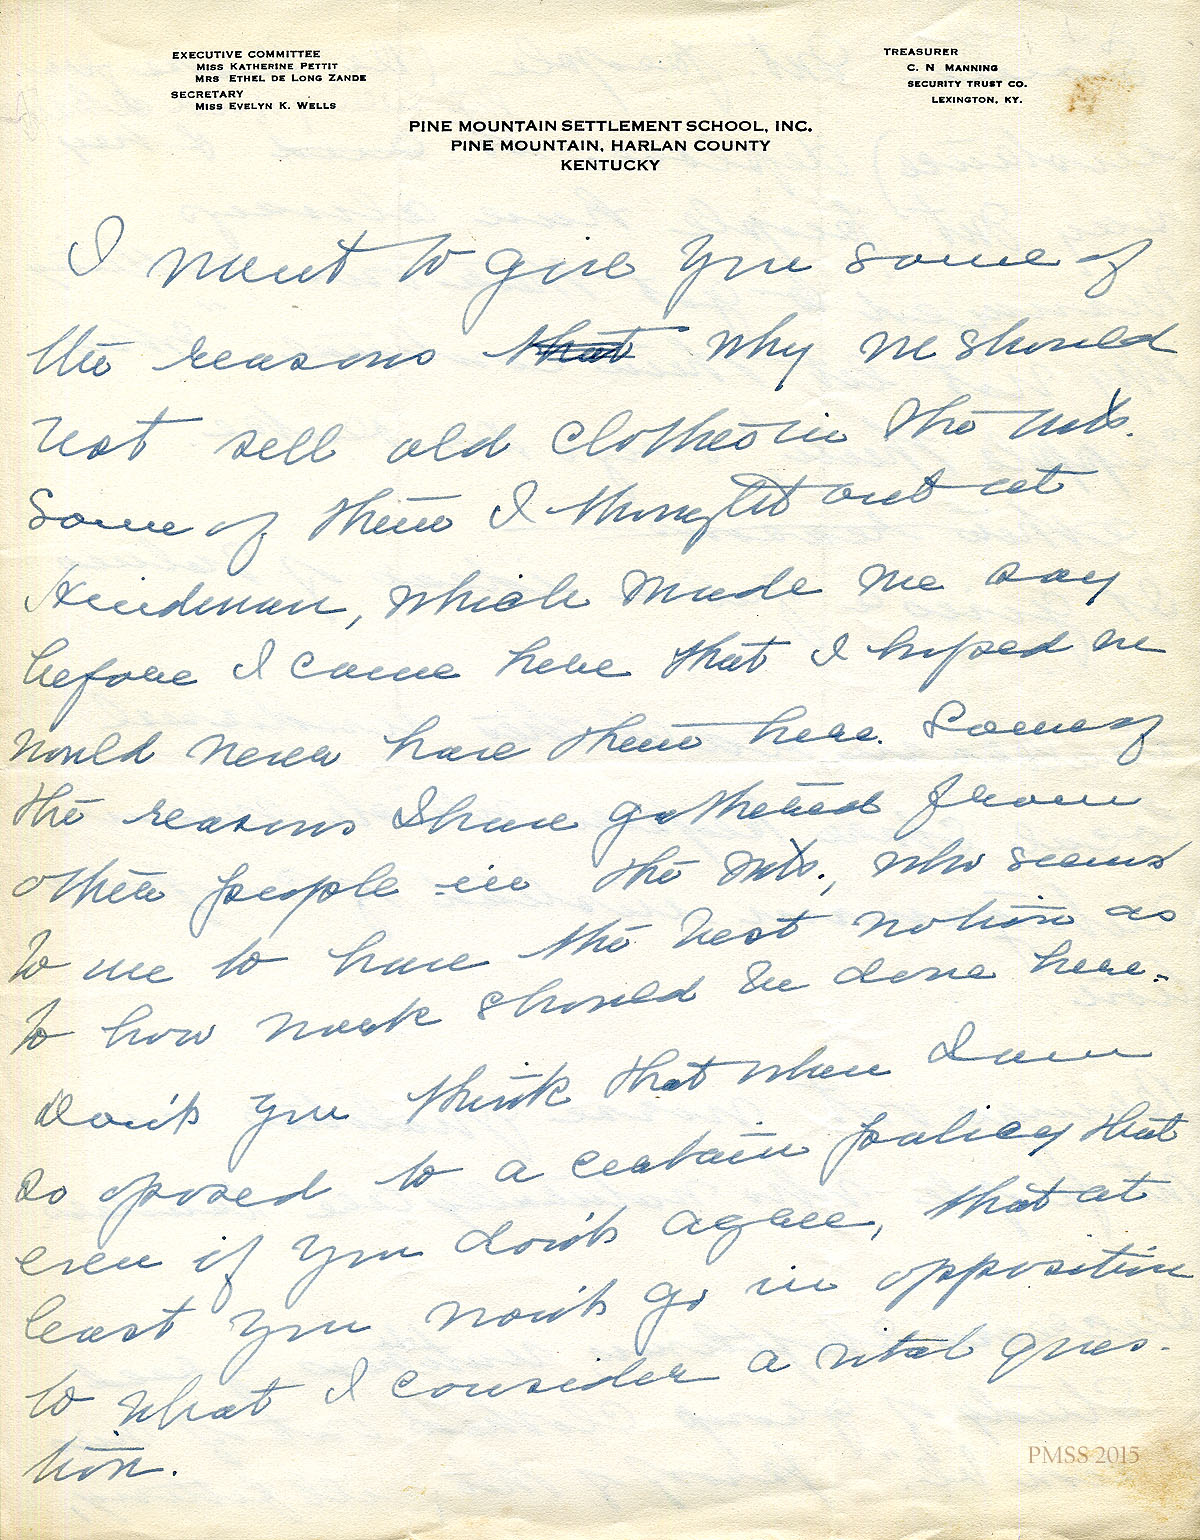 EXECUTIVE COMMITTEE
MISS KATHERINE PETTIT
MRS ETHEL DE LONG ZANDE
SECRETARY
MISS EVELYN K. WELLS
TREASURER
C. N MANNING
SECURITY TRUST CO.
LEXINGTON, KY.
PINE MOUNTAIN SETTLEMENT SCHOOL, INC.
PINE MOUNTAIN, HARLAN COUNTY
KENTUCKY
I want to give you some of
the reasons that why we should
not sell old clothes in the mts.
Some of them I thought out at
Hindman, which made me say
before I came here that I hoped we
would never have them here. Some of
the reasons I have gathered from
other people in the mts., who seems
to me to have the best notion as
to how work should be done here.
Don't you think that when I am
so oposed to a certain policy that
even if you don't agree, that at
least you won't go in opposition
to what I consider a vital ques-
tion.
PMSS 2015